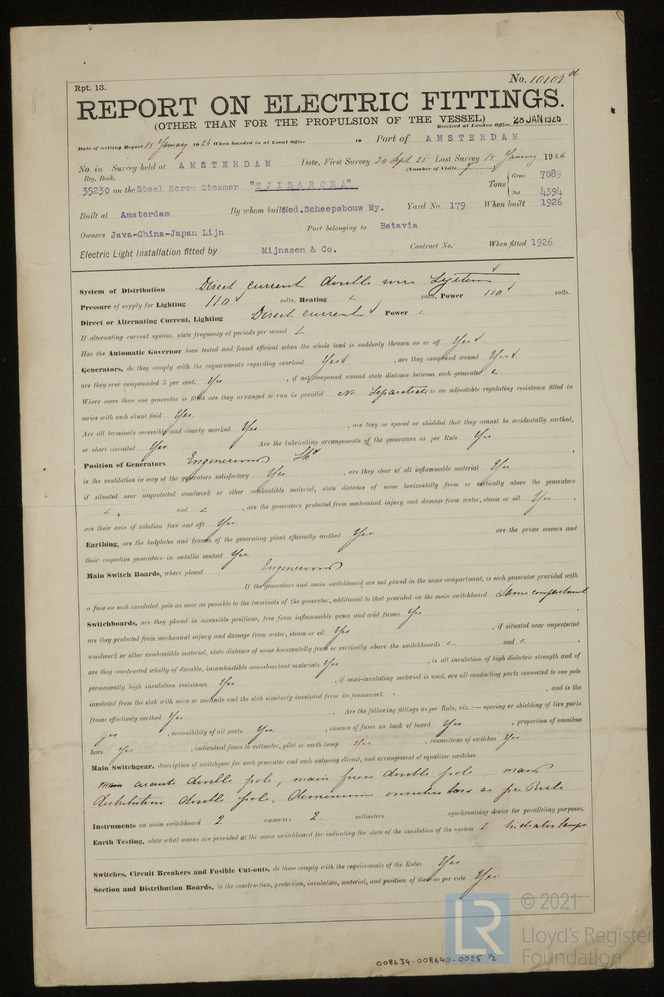 Rpt. 13.
No. 10109 d
REPORT ON ELECTRIC FITTINGS.
(OTHER THAN FOR THE PROPULSION OF THE VESSEL)
Received at London Office 28 JAN 1926
Date of writing Report 18 January 1926 When handed in at Local Office 19 Port of AMSTERDAM
No. in Survey held at AMSTERDAM Date, First Survey 20 Sept 25 Last Survey 15 January 1926
Reg. Book. (Number of Visits
35230 on the Steel Screw Steamer "TJISAROEA" Tons { Gross 7089
Net 4394
Built at Amsterdam By whom built Ned.Scheepsbouw My. Yard No. 179 When built 1926
Owners Java-China-Japan Lijn Port belonging to Batavia
Electric Light Installation fitted by Mijnssen & Co. Contract No. When fitted 1926
System of Distribution Direct current double wire System
Pressure of supply for Lighting 110 volts, Heating volts, Power 110 volts.
Direct or Alternating Current, Lighting Direct current Power
If alternating current, state frequency of periods per second
Has the Automatic Governor been tested and found efficient when the whole load is suddenly thrown on or off Yes
Generators, do they comply with the requirements regarding overload Yes , are they compound wound Yes
are they over compounded 5 per cent. Yes , if not compound wound state distance between each generator
Where more than one generator is fitted are they arranged to run in parallel No. Separately is an adjustable regulating resistance fitted in
series with each shunt field Yes.
Are all terminals accessible and clearly marked Yes , are they so spaced or shielded that they cannot be accidentally earthed,
or short circuited Yes Are the lubricating arrangements of the generators as per Rule Yes
Position of Generators Engineroom
is the ventilation in way of the generators satisfactory Yes , are they clear of all inflammable material Yes
if situated near unprotected woodwork or other combustible material, state distance of same horizontally from or vertically above the generators
and , are the generators protected from mechanical injury and damage from water, steam or oil Yes
are their axis of rotation fore and aft Yes
Earthing, are the bedplates and frames of the generating plant efficiently earthed Yes are the prime movers and
their respective generators in metallic contact Yes
Main Switch Boards, where placed Engineroom
If the generators and main switchboard are not placed in the same compartment, is each generator provided with
a fuse on each insulated pole as near as possible to the terminals of the generator, additional to that provided on the main switchboard Same compartment
Switchboards, are they placed in accessible positions, free from inflammable gases and acid fumes Yes
are they protected from mechanical injury and damage from water, steam or oil Yes , if situated near unprotected
woodwork or other combustible material, state distance of same horizontally from or vertically above the switchboards and
are they constructed wholly of durable, incombustible non-absorbent materials Yes , is all insulation of high dielectric strength and of
permanently high insulation resistance Yes , if semi-insulating material is used, are all conducting parts connected to one pole
insulated from the slab with mica or micanite and the slab similarly insulated from its framework , and is the
frame effectively earthed Yes Are the following fittings as per Rule, viz.:— spacing or shielding of live parts
yes , accessibility of all parts Yes , absence of fuses on back of board Yes , proportion of omnibus
bars Yes , individual fuses to voltmeter, pilot or earth lamp Yes , connections of switches Yes
Main Switchgear, description of switchgear for each generator and each outgoing circuit, and arrangement of equalizer switches
main circuits double pole, main fuses double pole, main
distribution double pole. omnibus bars as per Rule
Instruments on main switchboard 2 ammeters 2 voltmeters synchronising device for paralleling purposes.
Earth Testing, state what means are provided at the main switchboard for indicating the state of the insulation of the system 2 Indicator lamps
Switches, Circuit Breakers and Fusible Cut-outs, do these comply with the requirements of the Rules Yes
Section and Distribution Boards, is the construction, protection, insulation, material, and position of these as per rule Yes
LR © 2021
Lloyd's Register
Foundation
008634-008640-0025 1/2